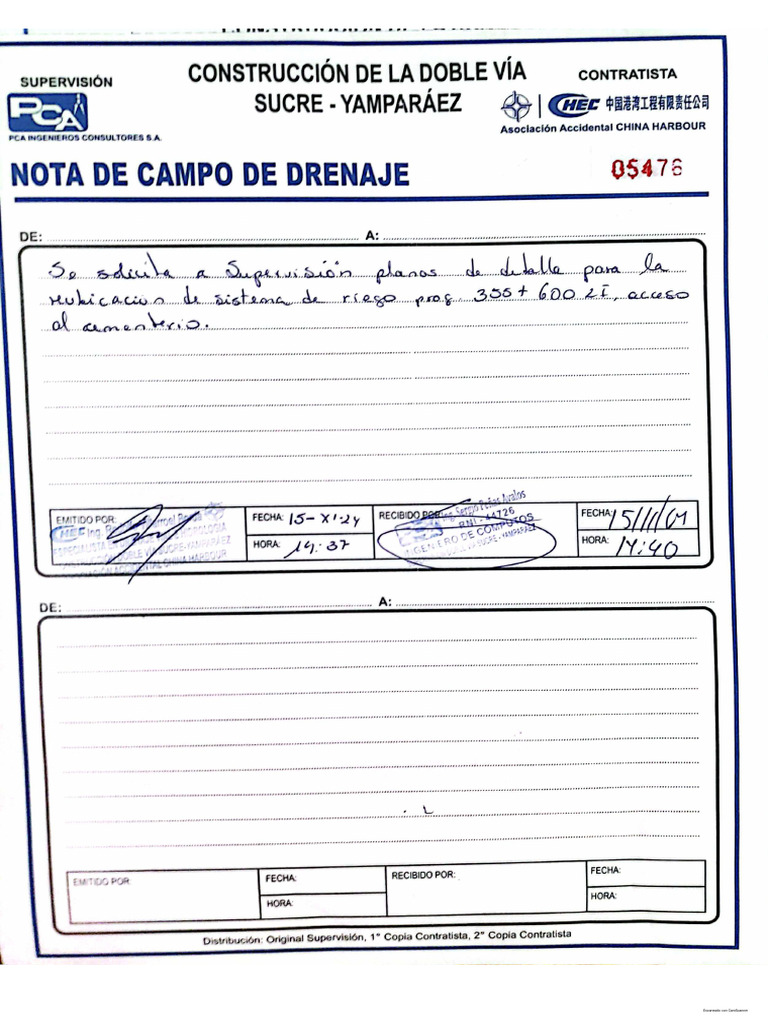 SUPERVISIÓN
CONSTRUCCIÓN DE LA DOBLE VÍA
SUCRE - YAMPARÁEZ
CONTRATISTA
PCA
PCA INGENIEROS CONSULTORES S.A.
CHEC 中国港湾工程有限责任公司
Asociación Accidental CHINA HARBOUR
NOTA DE CAMPO DE DRENAJE
05476
DE: A:
Se solicita a Supervisión planos de detalle para la
reubicacion de sistema de riego prog. 355+600 LI, acceso
al cementerio.
EMITIDO POR:
CHEC Ing.
ESPECIALISTA
DOBLE VÍA SUCRE-YAMPARÁEZ
ASOCIACIÓN ACCIDENTAL CHINA HARBOUR
FECHA: 15-XI-24
HORA: 14:37
RECIBIDO POR:
Ing. Sergio Peñas Avalos
RNI - 44726
INGENIERO DE COMPUTOS
SUCRE - YAMPARÁEZ
FECHA:
HORA: 14:40
DE: A:
EMITIDO POR:
FECHA:
HORA:
RECIBIDO POR:
FECHA:
HORA:
Distribución: Original Supervisión, 1° Copia Contratista, 2° Copia Contratista
Escaneado con CamScanner